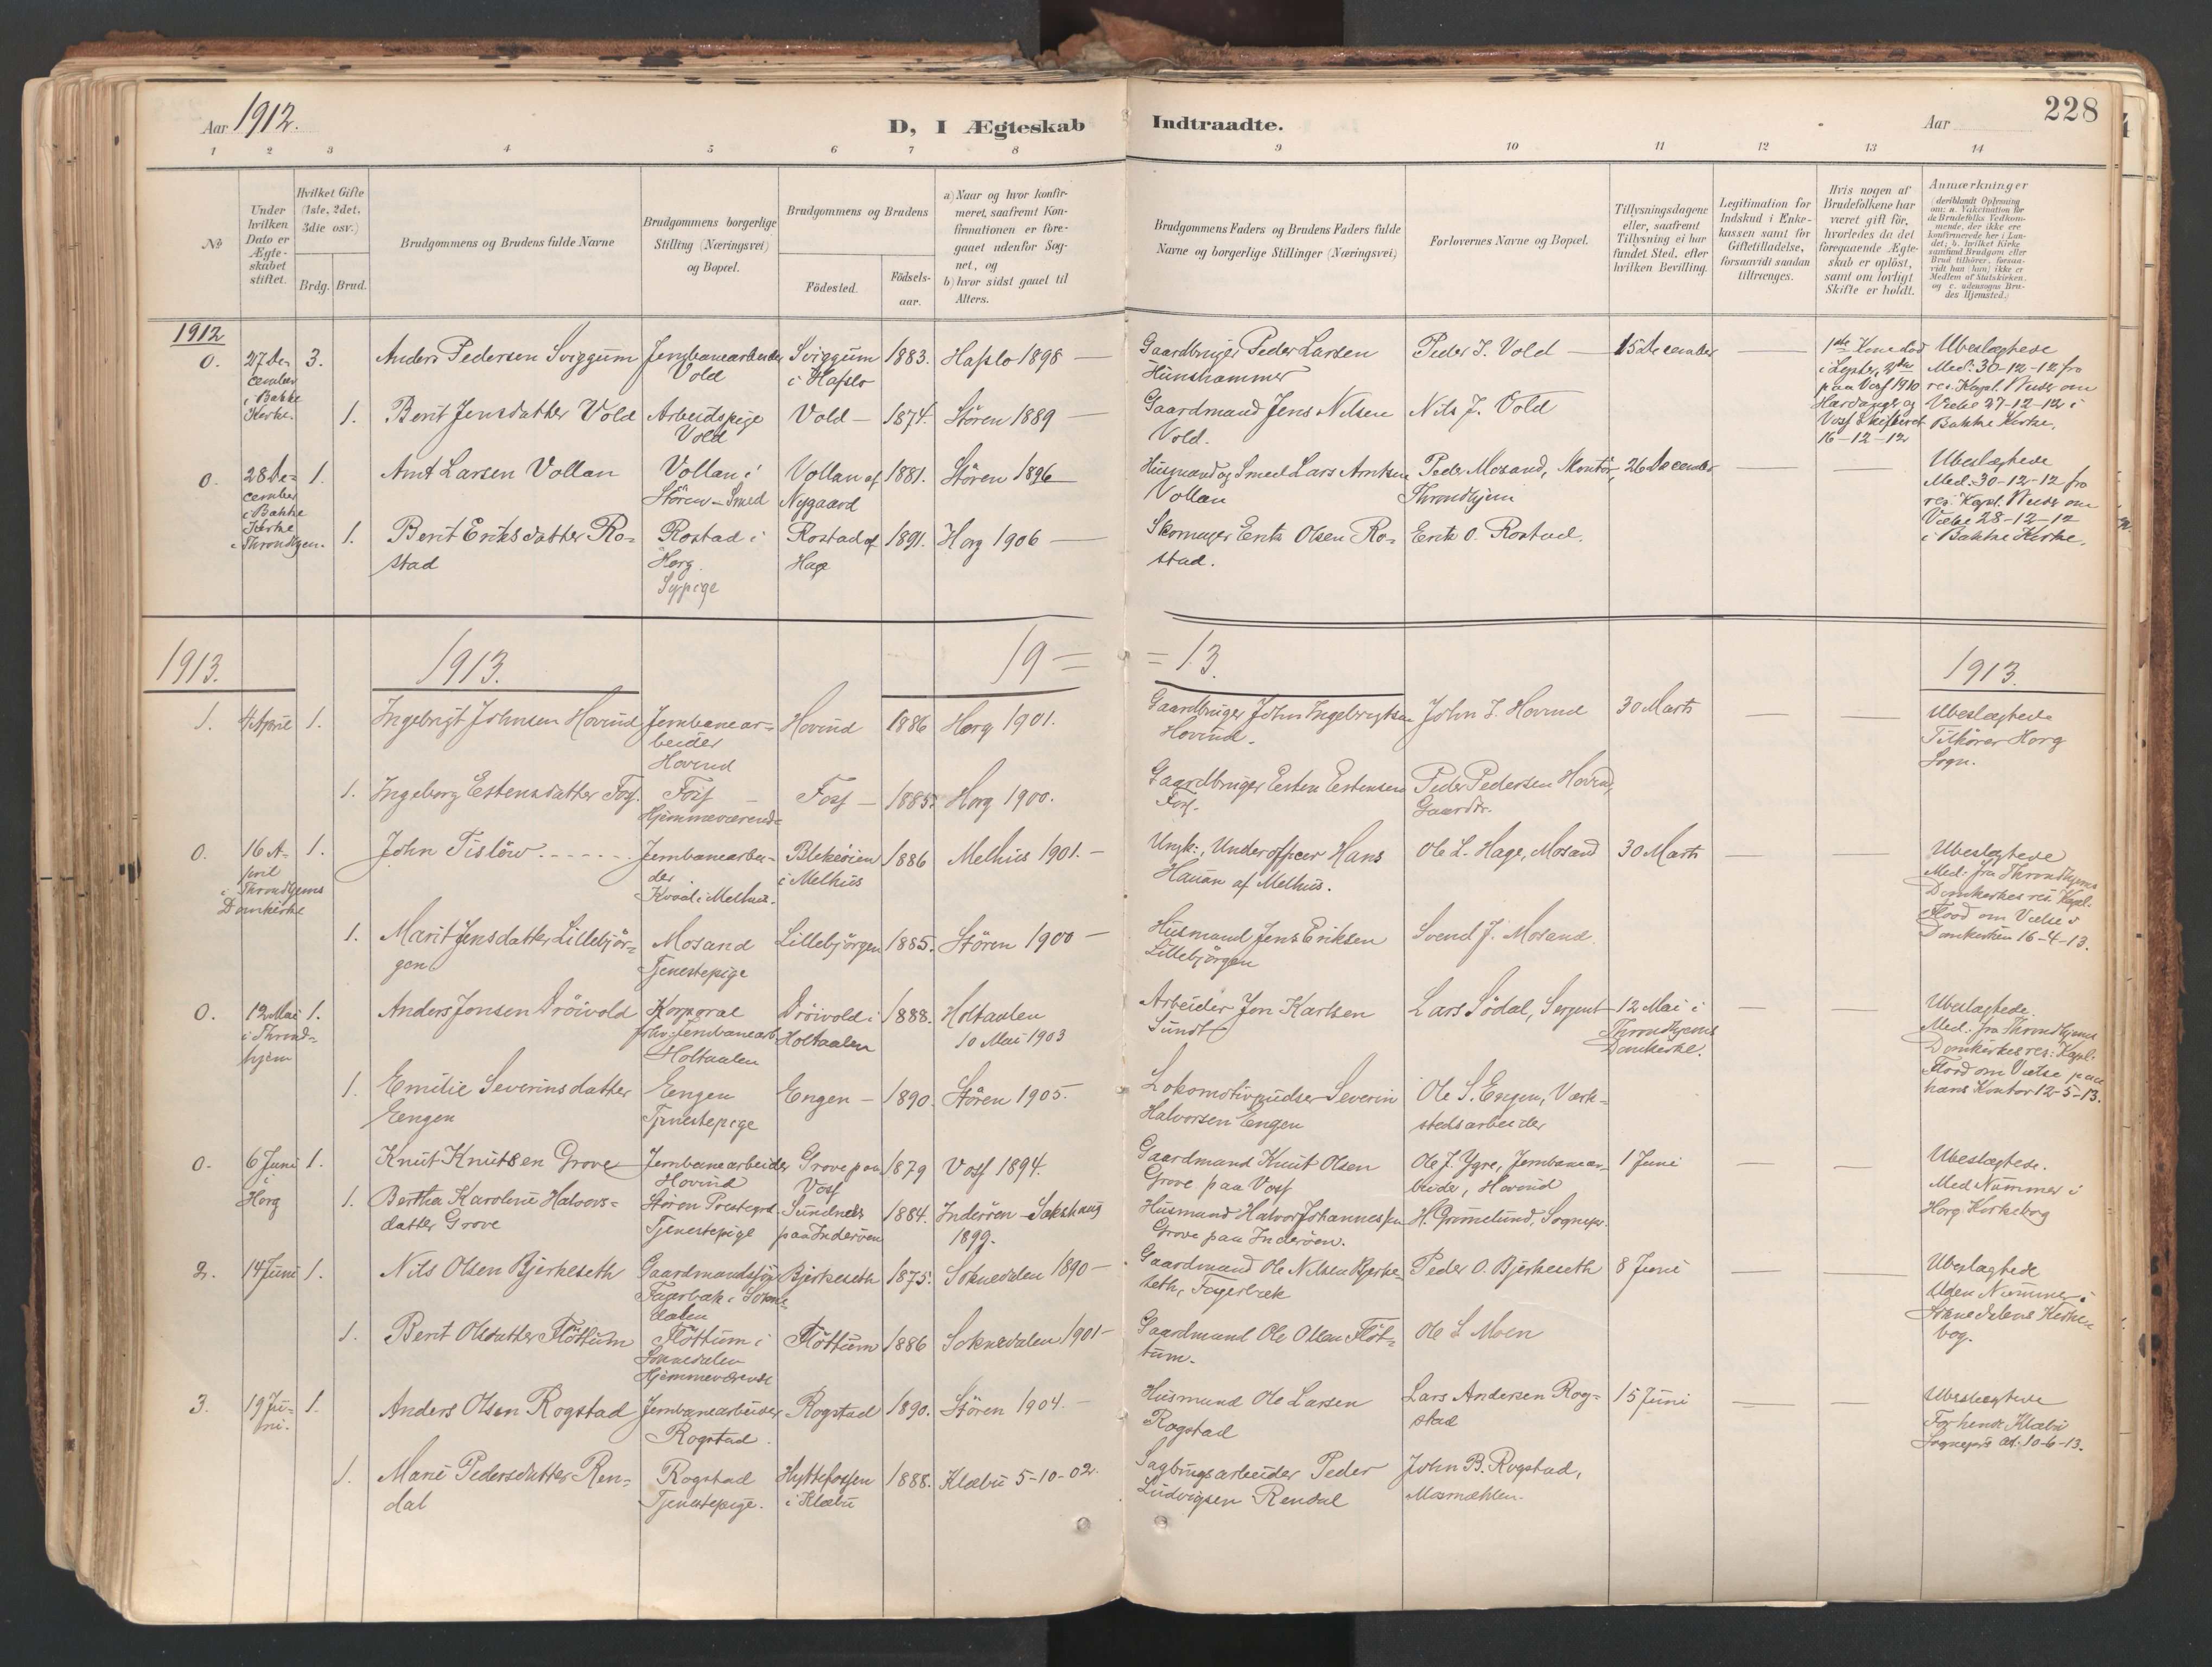 228
Aar 1912.
D, I Ægteskab Indtraadte.
Aar
1 2 3 4 5 6 7 8 9 10 11 12 13 14
No
Under hvilken Dato er Ægteskabet stiftet.
Hvilket Gifte (1ste, 2det, 3die osv.)
Brdg. Brud.
Brudgommens og Brudens fulde Navne
Brudgommens borgerlige Stilling (Næringsvei) og Bopæl.
Brudgommens og Brudens
Fødested.
Fødsels-aar.
a) Naar og hvor konfir-
meret, saafremt Kon-
firmationen er fore-
gaaet udenfor Sog-
net, og
b) hvor sidst gaaet til
Alters.
Brudgommens Faders og Brudens Faders fulde
Navne og borgerlige Stillinger (Næringsvei)
Forlovernes Navne og Bopæl.
Tillysningsdagene
eller, saafremt
Tillysning ei har
fundet Sted, efter
hvilken Bevilling.
Legitimation for
Indskud i Enke-
kassen samt for
Giftetilladelse,
forsaavidt saadan
tiltrænges.
Hvis nogen af
Brudefolkene har
været gift før,
hvorledes da det
foregaaende Ægte-
skab er opløst,
samt om lovligt
Skifte er holdt.
Anmærkninger
(deriblandt Oplysning
om: a. Vakcination for
de Brudefolks Vedkom-
mende, der ikke ere
konfirmerede her i Lan-
det; b. hvilket Kirke
samfund Brudgom eller
Brud tilhører, forsaa-
vidt han (hun) ikke er
Medlem af Statskirken
og c. udensogns Bru-
des Hjemsted.)
1912
0. 27 De-
cember
i Bakke
Kirke.
3. Anders Pedersen Sviggum
Jernbanearbeider
Vold
Sviggum
i Hafslo
1883. Hafslo 1898 —
Gaardbruger Peder Larsen
Hunshammer
Peder J. Vold —
15 December
1ste Kone død
i Lyster, 2den
paa Voss 1910
Hardanger og
Voss Skifteret
16-12-12
Ubeslægtede
Med: 30-12-12 fra
res. Kapl. om
Vielse 27-12-12 i
Bakke Kirke.
1. Berit Jensdatter Vold
Arbeidspige
Vold
Vold — 1874. Støren 1889 —
Gaardmand Jens Nilsen
Vold.
Nils J. Vold
0. 28 De-
cember
i Bakke
Kirke
i Throndhjem.
1. Arnt Larsen Vollan
Vollan i
Støren — Smed
Vollan af
Nygaard
1881. Støren 1896
Husmand og Smed Lars Arntsen
Vollan
Peder Mosand, Montør,
Throndhjem
26 December
Ubeslægtede
Med: 30-12-12 fra
res. Kapl. om
Vielse 28-12-12
i Bakke Kirke.
1. Berit Eriksdatter Ro-
stad
Rostad i
Horg.
Sypige
Rostad af
Hage
1891. Horg 1906 —
Skomager Erik Olsen Ro-
stad.
Erik O. Rostad.
1913. 1913. 19 = = 13. 1913.
1. 4 April 1. Ingebrigt Johnsen Hovind
Jernbanear-
beider
Hovind
Hovind 1886 Horg 1901.
Gaardbruger John Ingebrigtsen
Hovind.
John I. Hovind
30 Marts
Ubeslægtede
Tilhører Horg
Sogn.
1. Ingeborg Estensdatter Foss.
Foss —
Hjemmeværende
Foss — 1885. Horg 1900.
Gaardbruger Esten Estensen
Foss.
Peder Pedersen Hovind,
Gaardbr.
0. 16 A-
pril
i Throndhjems
Domkirke
1. John Tisløw
Jernbanearbei-
der
Kvaal i Melhus.
Blekesien
i Melhus
1886 Melhus 1901. —
Ungk:, Underofficer Hans
Hauan af Melhus.
Ole L. Hage, Mosand
30 Marts
Ubeslægtede
Med: fra Throndhjems
Domkirkes res. Kapl.
Flood om Vielse i
Domkirken 16-4-13.
1. Marit Jensdatter Lillebjør-
gen
Mosand
Tjenestepige
Lillebjørgen 1885. Støren 1900 —
Husmand Jens Eriksen
Lillebjørgen
Svend J. Mosand.
0. 12 Mai
i Thrond-
hjem
1. Anders Jonsen Drøivold
Korporal
forhv: Jernbanearb.
Holtaalen
Drøivold i
Holtaalen
1888. Holtaalen
10 Mai 1903
Arbeider Jon Karlsen
Sundt
Lars Sødal, Sergent
12 Mai i
Throndhjems
Domkirke.
Ubeslægtede.
Med: fra Throndhjems
Domkirkes res: Kapl.
Flood om Vielse paa
hans Kontor 12-5-13.
1. Emilie Severinsdatter
Engen
Engen
Tjenestepige
Engen — 1890. Støren 1905.
Lokomotivpudser Severin
Halvorsen Engen
Ole S. Engen, Værk-
stedsarbeider
0. 6 Juni
i
Horg
1. Knut Knutsen Grove
Jernbanearbeider
Hovind
Grove paa
Voss
1879 Voss 1894.
Gaardmand Knut Olsen
Grove paa Voss
Ole J. Ygre, Jernbanear-
beider, Hovind
1 Juni
Ubeslægtede.
Med Nummer i
Horg Kirkebog
1. Bertha Karoline Halvors-
datter Grove
Støren Prestegrd.
Tjenestepige
Sundnes
paa Inderøen
1884. Inderøen — Sakshaug
1899.
Husmand Halvor Johannessen
Grove paa Inderøen.
H. Grimelund, Sognepr.
2. 14 Juni 1. Nils Olsen Bjerkeseth
Gaardmandssøn
Fagerbæk i Sokne-
dalen
Bjerkeseth 1875. Soknedalen 1890 —
Gaardmand Ole Nilsen Bjerke-
seth, Fagerbæk
Peder O. Bjerkeseth
8 Juni
Ubeslægtede
Uden Nummer i
Soknedalens Kirke-
bog.
1. Berit Olsdatter Fløttum
Fløttum i
Soknedalen
Hjemmeværende
Fløttum 1886 Soknedalen 1901 —
Gaardmand Ole Olsen Fløt-
tum.
Ole L Moen
3. 19 Ju-
ni.
1. Anders Olsen Rogstad
Jernbanearbeider
Rogstad
Rogstad 1890. Støren 1904. —
Husmand Ole Larsen
Rogstad
Lars Andersen Rog-
stad
15 Juni
Ubeslægtede
For hende Klæbu
Sognepr. at. 10-6-13.
1. Marie Pedersdatter Ren-
dal
Rogstad
Tjenestepige.
Hyttefossen
i Klæbu
1888. Klæbu 5-10-02.
Sagbrugsarbeider Peder
Ludvigsen Rendal
John B. Rogstad,
Mosmæhlen.